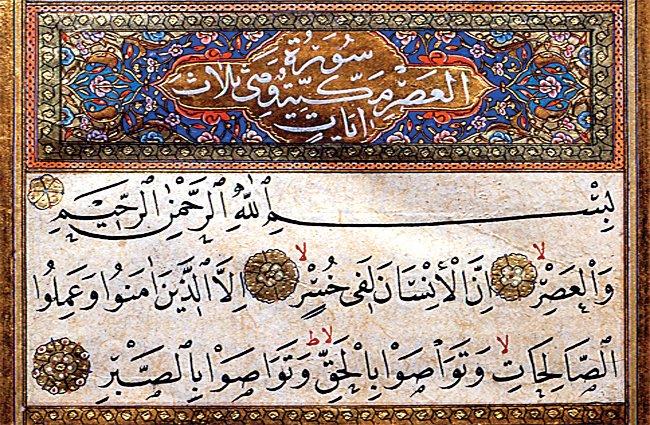 سُورَةُ
الْعَصْرِ مَكِّيَّةٌ وَهِيَ ثَلَاثُ
اٰيَاتٍ
بِسْمِ اللّٰهِ الرَّحْمٰنِ الرَّحِيمِ
وَالْعَصْرِ لا اِنَّ الْاِنْسَانَ لَفِي خُسْرٍ لا اِلَّا الَّذِينَ اٰمَنُوا وَعَمِلُوا
الصَّالِحَاتِ لا وَتَوَاصَوْا بِالْحَقِّ لا ط وَتَوَاصَوْا بِالصَّبْرِ